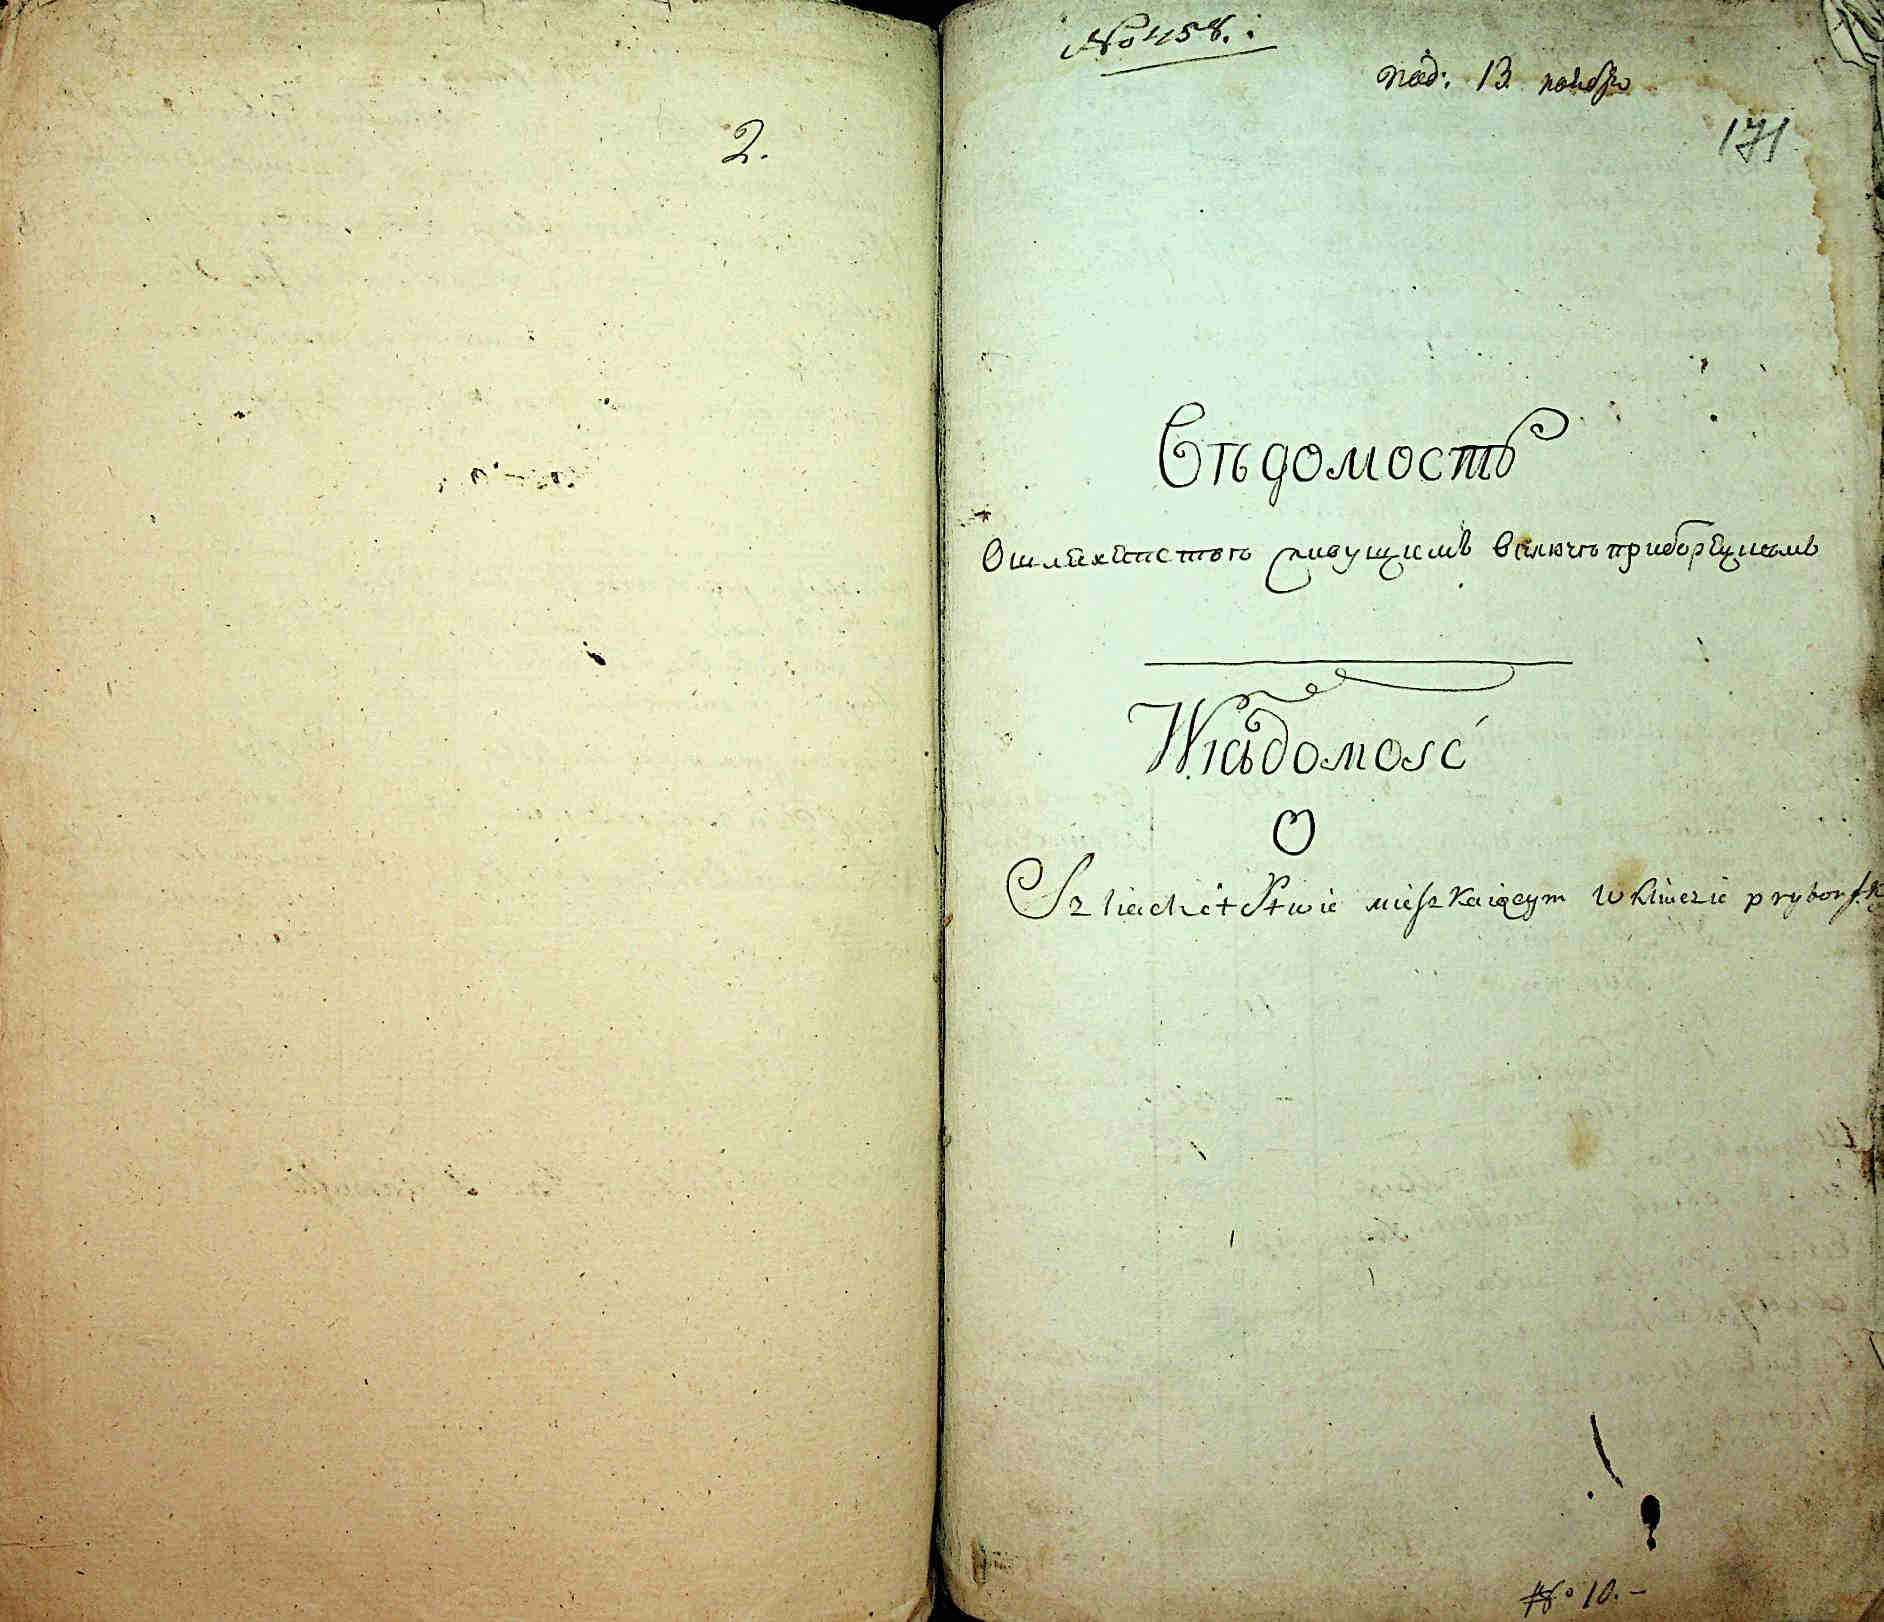 2.
No 458.
под: 13 ноября
171
Вѣдомость
О шляхетстве живущемъ в ключѣ приборскомъ
Wiadomosć
O
Szliachetstwie mieszkaiącym w kluczie pryborsk
No 10.-